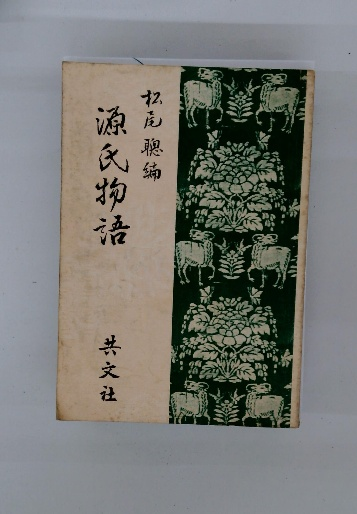 松尾聰編
源氏物語
共文社